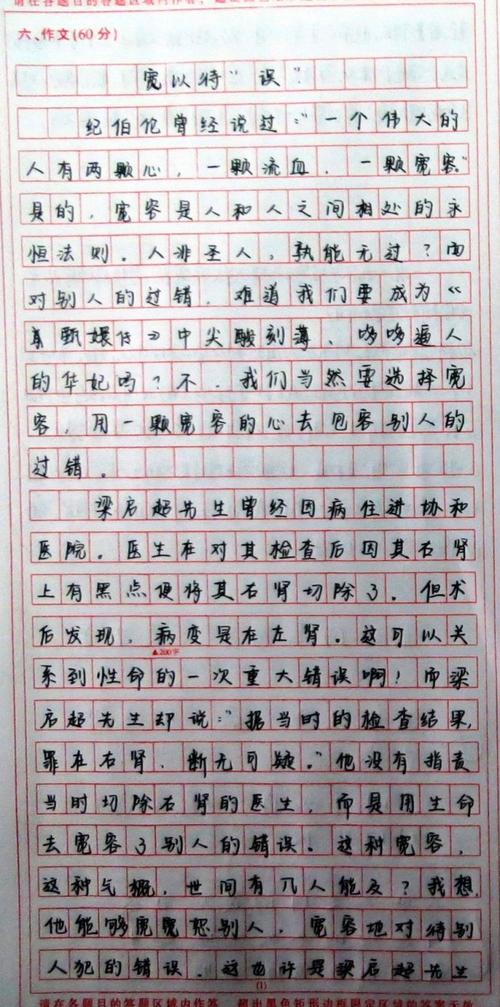 六、作文(60分)
宽以待“误”
纪伯伦曾经说过:“一个伟大的
人有两颗心,一颗流血,一颗宽容”
是的,宽容是人和人之间相处的永
恒法则。人非圣人,孰能无过?而
对别人的过错,难道我们要成为《
甄嬛传》中尖酸刻薄,哆哆逼人
的华妃吗?不,我们当然要选择宽
容,用一颗宽容的心去包容别人的
过错。
梁启超先生曾经因病住进协和
医院。医生在对其检查后因其右肾
上有黑点便将其右肾切除了。但术
后发现,病变是在左肾。这可以关
▲200字
系到性命的一次重大错误啊!而梁
启超先生却说:“据当时的检查结果,
罪在右肾,断无可疑。”他没有指责
当时切除右肾的医生,而是用生命
去宽容了别人的错误。这种宽容,
这种气概,世间有几人能及?我想,
他能够宽宽恕别人,宽容地对待别
人犯的错误,这也许是梁启超先生
(1)
请在各题目的答题区域内作答,超出黑色矩形边框限定区域的答案无效